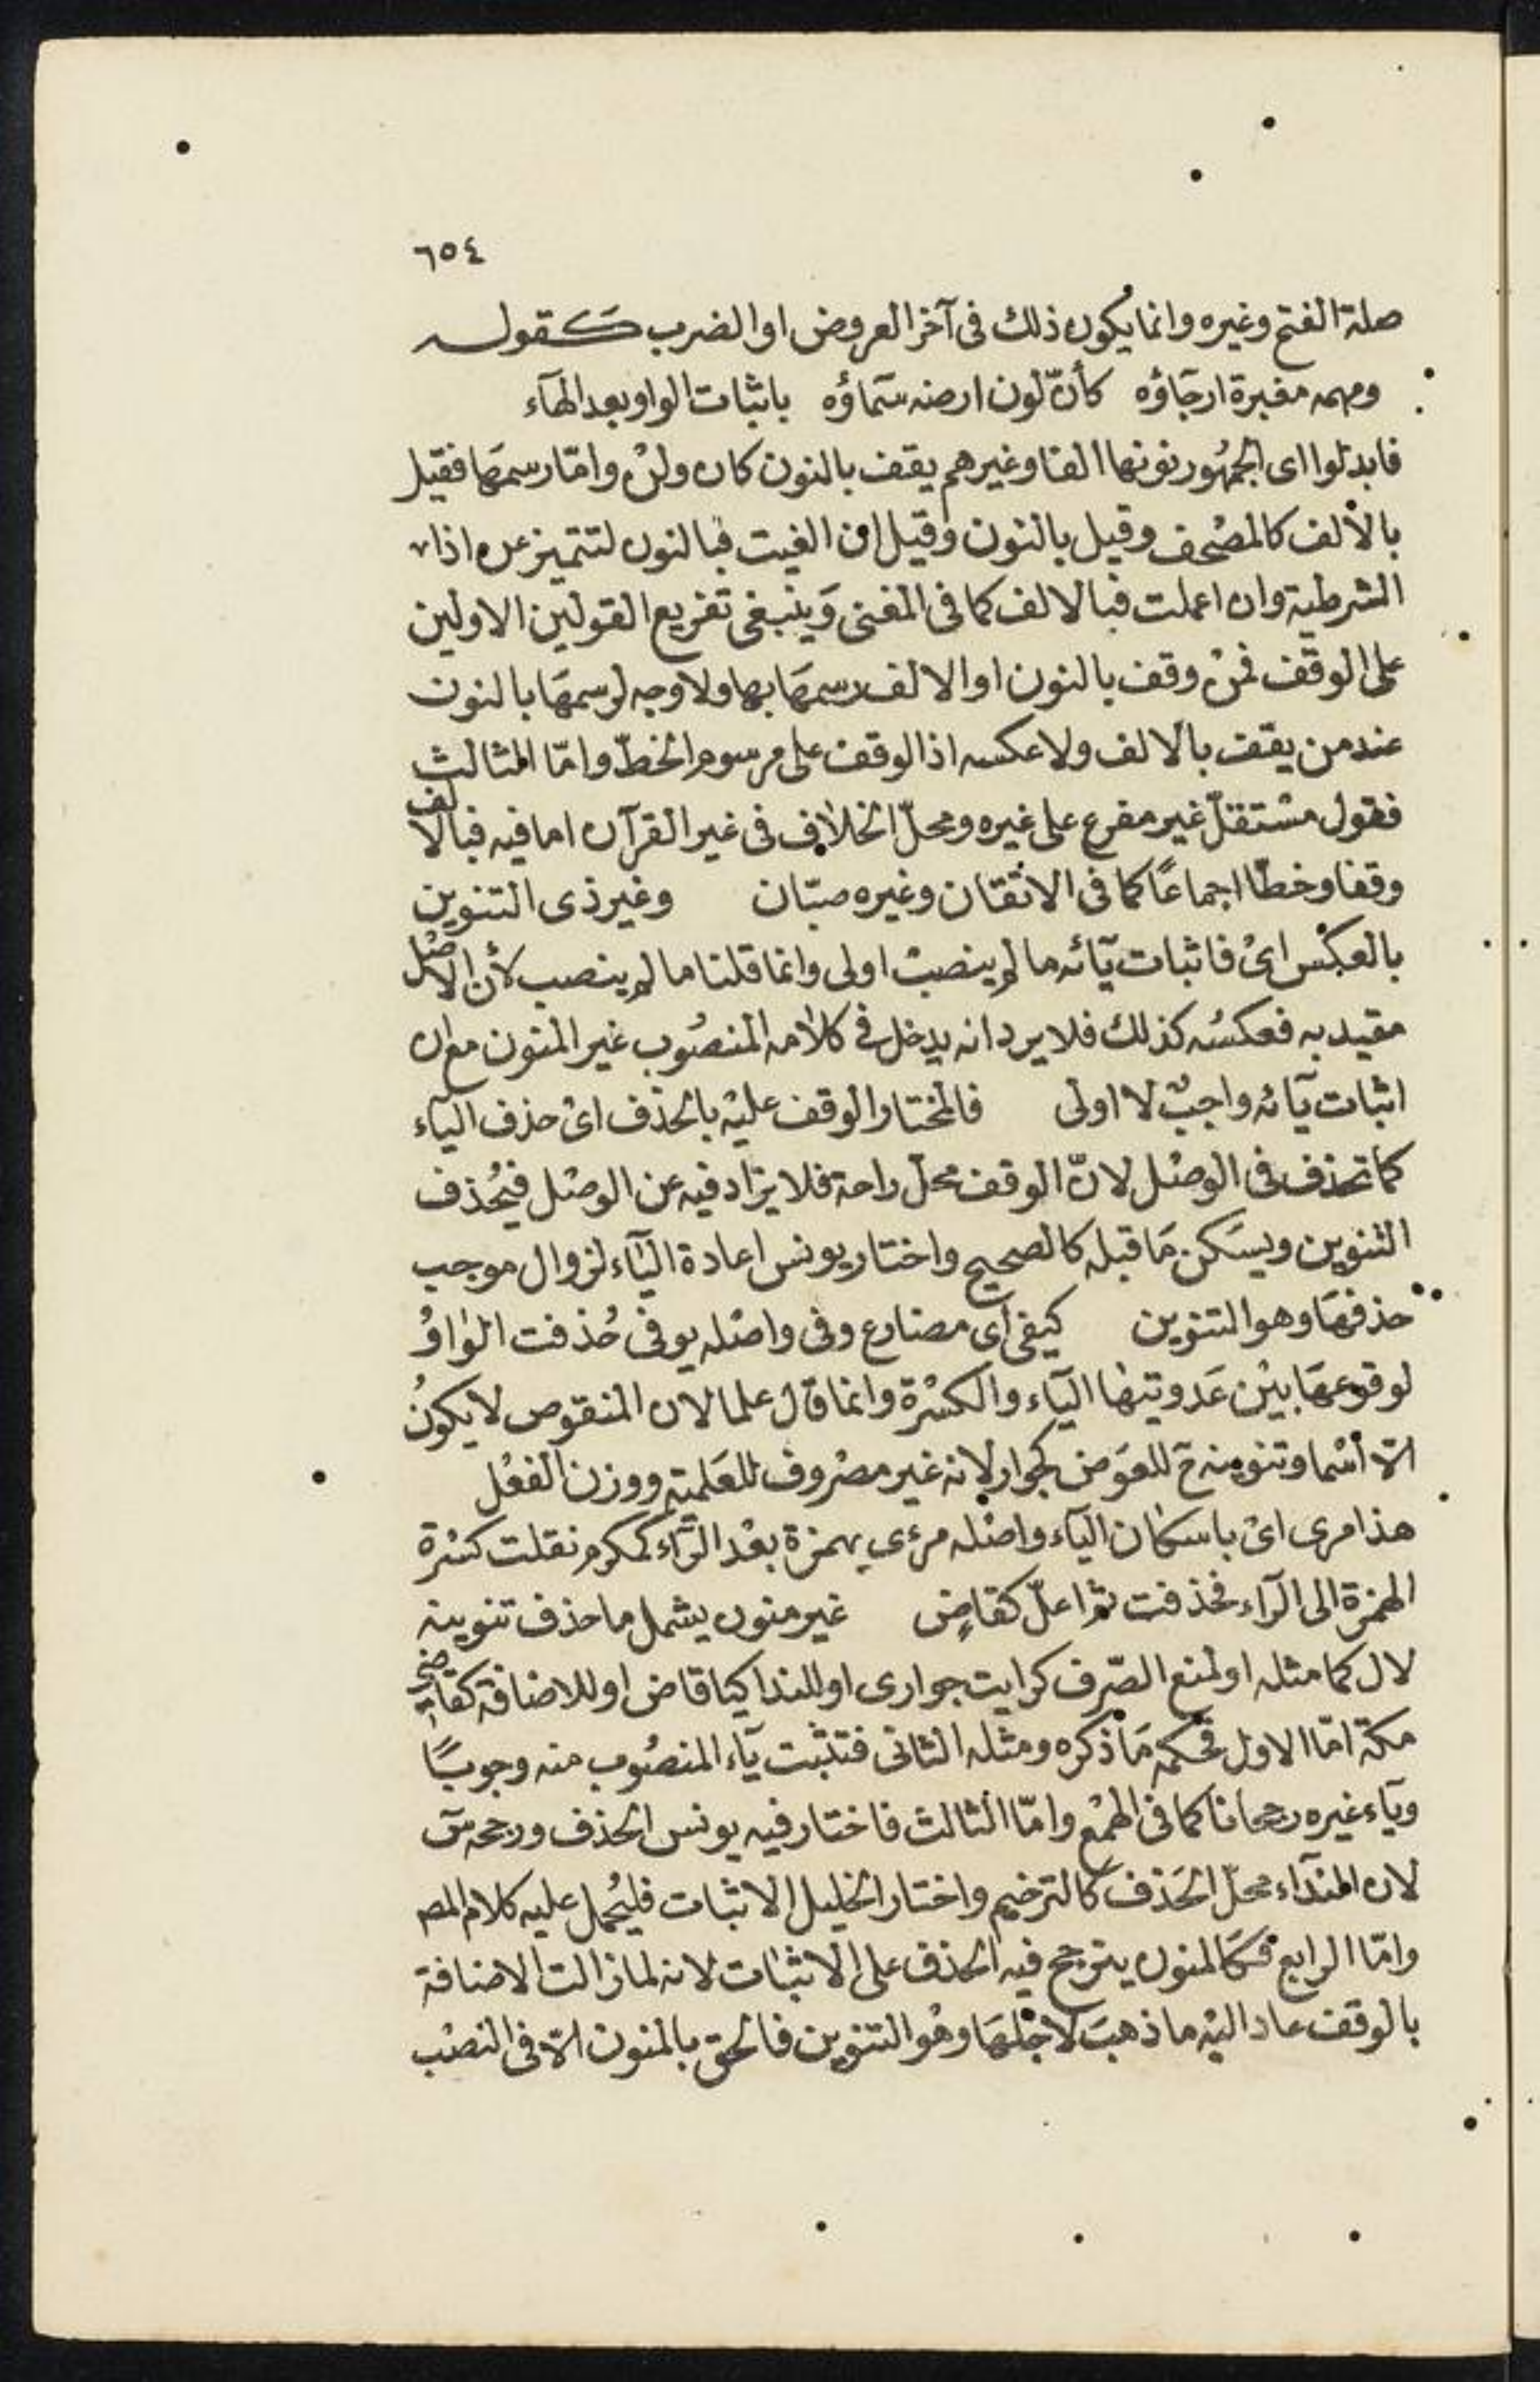 ٦٥٤
صلة الفتح وغيره وانما يكون ذلك فى آخر العروض او الضرب كقوله
ومهمه مغبرة ارجاؤه كأنّ لون ارضه سماؤه باثبات الواو بعد الهآء
فابدلوا اى الجمهور نونها الفا وغيرهم يقف بالنون كان ولن وامّا رسمها فقيل
بالألف كالمصحف وقيل بالنون وقيل ان الغيت فبالنون لتتميز عن اذا
الشرطية وان اعملت فبالالف كما فى المغنى وينبغى تفريع القولين الاولين
على الوقف فمن وقف بالنون او الالف رسمها بها ولا وجه لرسمها بالنون
عند من يقف بالالف ولا عكسه اذ الوقف على مرسوم الخطّ وامّا الثالث
فقول مستقلّ غير مفرع على غيره ومحلّ الخلاف فى غير القرآن اما فيه فبالالف
وقفا وخطّا اجماعًا كما فى الاتقان وغيره صبّان وغير ذى التنوين
بالعكس اى فاثبات يآئه ما لم ينصب اولى وانما قلنا ما لم ينصب لأن الاصل
مقيد به فعكسه كذلك فلا يرد انه يدخل فى كلامه المنصوب غير المنون مع ان
اثبات يآئه واجب لا اولى فالمختار الوقف عليه بالحذف اى حذف اليآء
كما تحذف فى الوصل لانّ الوقف محل راحة فلا يزاد فيه عن الوصل فيحذف
التنوين ويسكن ما قبله كالصحيح واختار يونس اعادة اليآء لزوال موجب
حذفها وهو التنوين كيفى اى مضارع وفى واصله يوفى حُذفت الواوُ
لوقوعها بين عدوتيها اليآء والكسرة وانما قال علما لان المنقوص لا يكون
الّا اسما وتنوينه ح للعوض كجوار لانه غير مصروف للعلمية ووزن الفعل
هذا مرى اى باسكان اليآء واصله مرءى بهمزة بعد الرّآء كمكرم نقلت كسرة
الهمزة الى الرآء فحذفت ثم اعلّ كقاضٍ غير منون يشمل ما حذف تنوينه
لال كما مثله او لمنع الصّرف كرايت جوارى او للندا كيا قاض او للاضافة كقاضى
مكة امّا الاول فحكمه ما ذكره ومثله الثانى فتثبت يآء المنصوب منه وجوبًا
ويآء غيره رجحانا كما فى الهمع وامّا الثالث فاختار فيه يونس الحذف ورجحه س
لان الندآء محلّ الحذف كالترخيم واختار الخليل الاثبات فليحمل عليه كلام المص
وامّا الرابع فكالمنون يترجح فيه الحذف على الاثبات لانه لما زالت الاضافة
بالوقف عاد اليه ما ذهب لاجلها وهو التنوين فالحق بالمنون الّا فى النصب